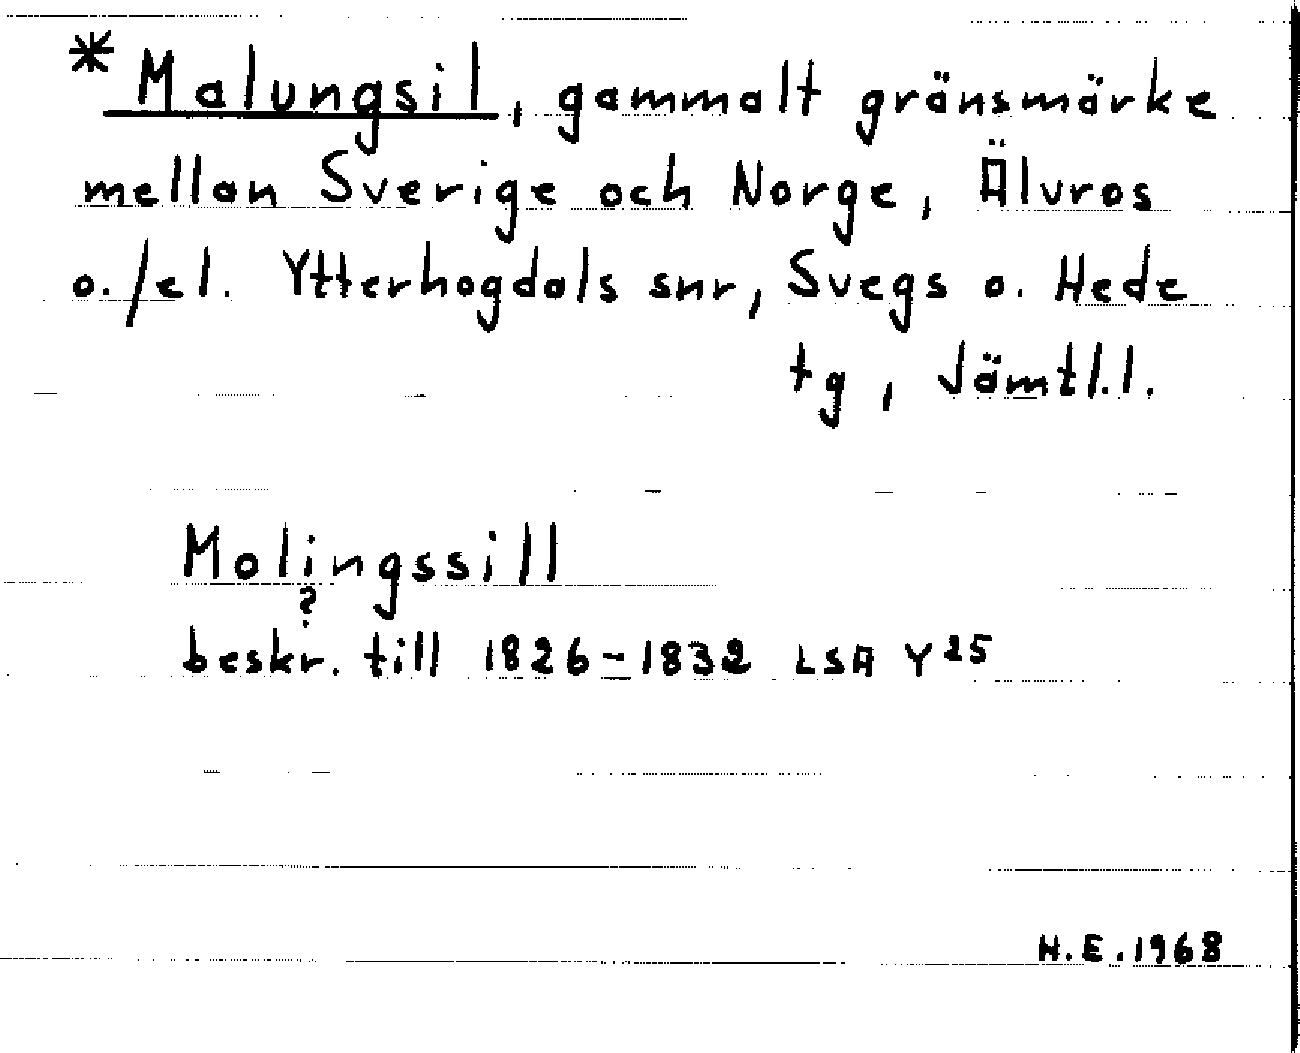 *Malungsil, gammalt gränsmärke
mellan Sverige och Norge, Älvros
o./el. Ytterhogdals snr, Svegs o. Hede
tg, Jämtl.l.
Molingssill
?
beskr. till 1826-1832 LSA Y25
H.E.1968